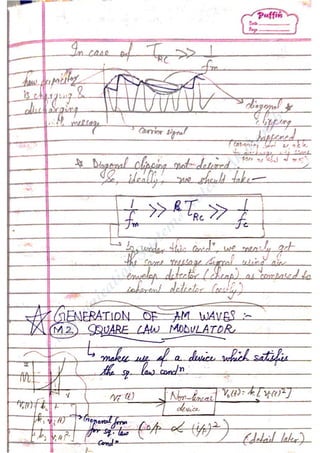 Puffin
Date
Page
In case of T_RC >> 1/fm
how capacitor
is charging &
discharging
with message
carrier signal
diagonal
clipping
happened
* Diagonal clipping not desired
So, ideally, we should take —
1/fm >> T_RC >> 1/fc
under this condⁿ, we nearly get
the same message signal using an
envelop detector (cheap) as compared to
coherent detector (costly)
GENERATION OF AM WAVES :-
M2. SQUARE LAW MODULATOR
↳ makes use of a device which satisfies
the sq. law condⁿ
V₁(t)
Non-linear
device
General form
for sq. law
condⁿ
(O/P ∝ (i/p)²)
(detail later)